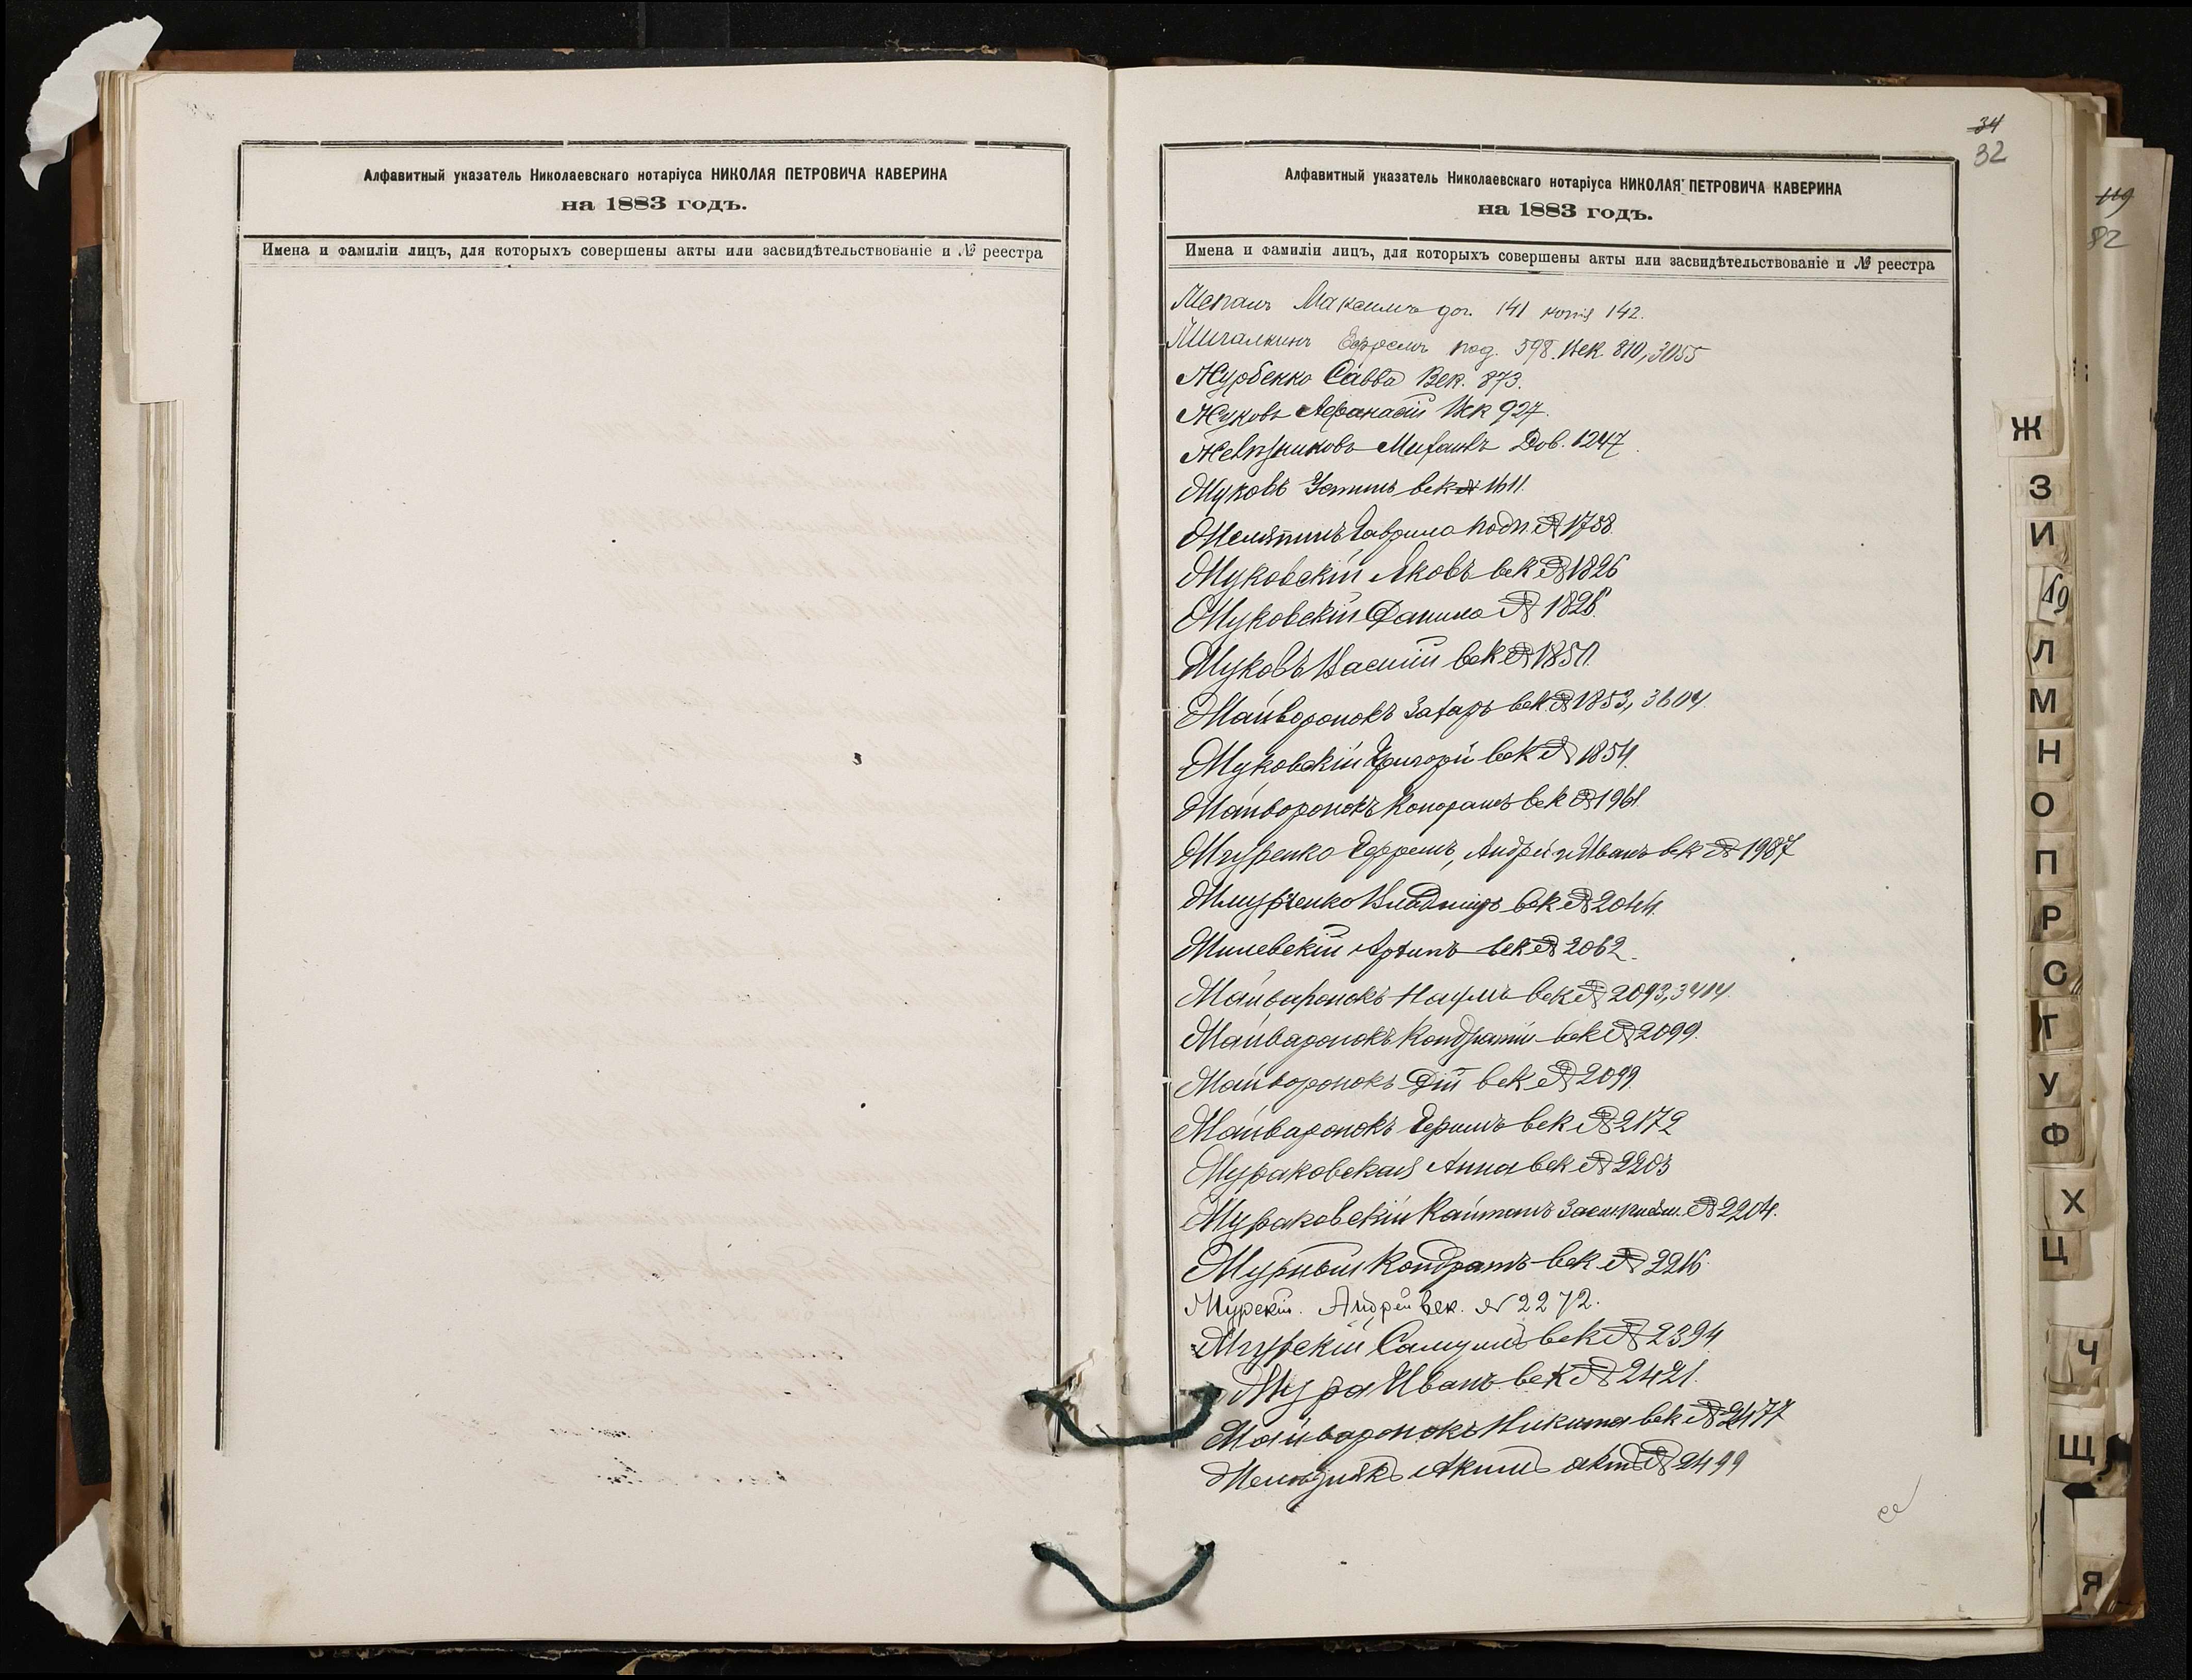 Алфавитный указатель Николаевскаго нотаріуса НИКОЛАЯ ПЕТРОВИЧА КАВЕРИНА
на 1883 годъ.
Имена и фамиліи лицъ, для которыхъ совершены акты или засвидѣтельствованіе и № реестра
34
32
Алфавитный указатель Николаевскаго нотаріуса НИКОЛАЯ ПЕТРОВИЧА КАВЕРИНА
на 1883 годъ.
Имена и фамиліи лицъ, для которыхъ совершены акты или засвидѣтельствованіе и № реестра
Максимъ дог. 141 копія 142.
Жигалкинъ Ефремъ под. 598. Век. 810, 3055
Журбенко Савва Век. 873.
Жуковъ Афанасій Век 927.
Михаилъ Дов. 1247
Жуковъ Устинъ век 1611.
Гаврило подп. № 1788.
Жуковскій Яковъ век № 1826
Жуковскій Данило № 1828.
Жуковъ Василій век № 1850.
Жайворонокъ Захаръ век. № 1853, 3604.
Жуковскій Григорій век № 1854.
Жайворонокъ век № 1961.
Ефремъ, Андрей и Иванъ век № 1987
Владиміръ век № 2044.
Архипъ век № 2062.
Жайворонокъ Наумъ век № 2093, 3414.
Жайваронокъ Кондратій век № 2099.
Жайворонокъ век № 2099.
Жайваронокъ век № 2172
Жураковская Анна век № 2203
Жураковскій № 2204.
Журный Кондратъ век № 2216.
Журскій. Андрей век. № 2272.
век № 2394.
Жура Иванъ век № 2421.
Жайваронокъ Никита век № 2477
Акимъ актъ № 2499
119
82
Ж
З
И
Л
М
Н
О
П
Р
С
Т
У
Ф
Х
Ц
Ч
Щ
Я